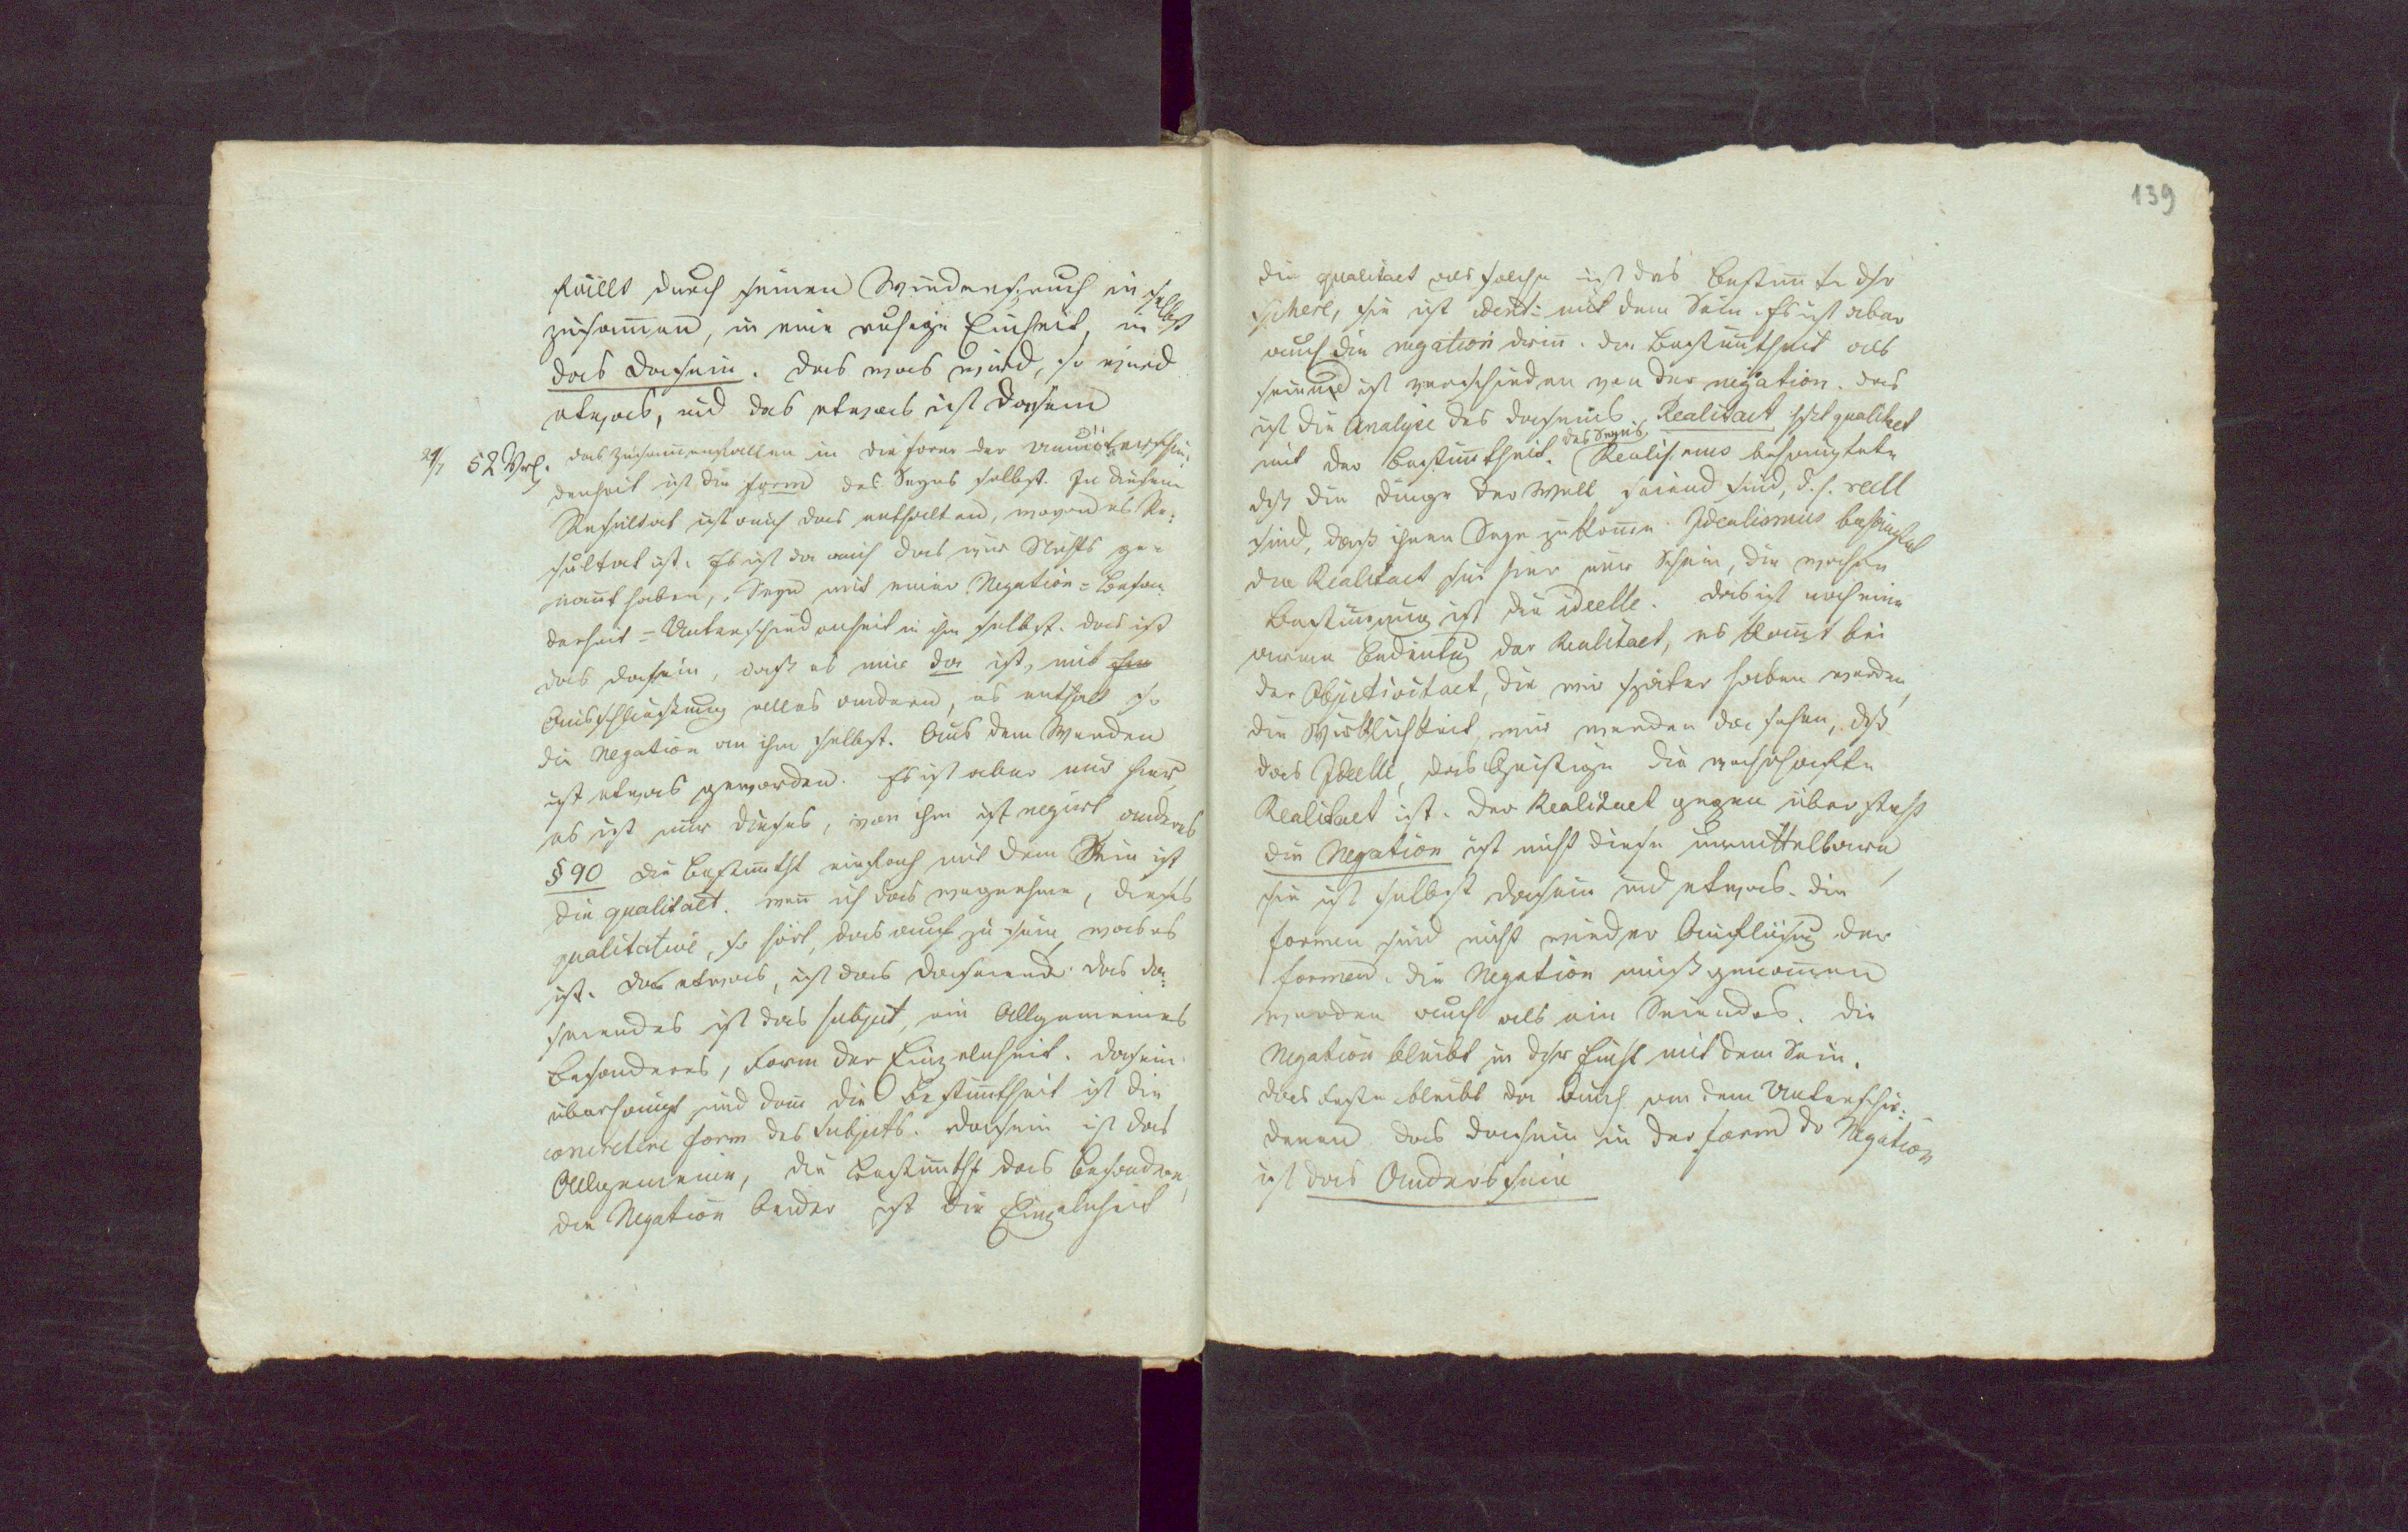 fällt durch seinen Wiederspruch in selbst
zusam̅en, in eine ruhige Einheit, in
das Dasein. Das was wird, so wird
etwas, und das etwas ist Dasein
29/7 52 Vrl. das Zusam̅enfallen in die Form der Ununterschie:
denheit ist die Form des Seyns selbst. In diesem
Resultat ist auch das enthalten, wovon es Re:
sultat ist. Es ist da auch das wir Nichts ge-
nan̅t haben, Seyn mit einer Negation = Beson
derheit = Unterschiedenheit in ihm selbst. das ist
das Dasein, daß es nur da ist, mit
Ausschließung alles andern, es enthält so
die Negation an ihm selbst. Aus dem Werden
ist etwas geworden. Es ist aber nur hier,
es ist nur dieses, von ihm ist negirt anderes
§ 90 die Bestim̅tht einfach mit dem Sein ist
die qualitaet. wen̅ ich das wegnehme, dieses
qualitative, so hört, das auf zu sein, was es
ist. das etwas, ist das Daseiend. das da:
seiendes ist das Subject, ein Allgemeines
besonderes, Form der Einzelnheit. Dasein
überhaupt und dan̅ die Bestim̅theit ist die
concretere Form des Subjects. Dasein ist das
Allgemeine, die Bestim̅tht das besondere,
die Negation beider ist die Einzelnheit
139
die qualitaet als solche ist das Bestim̅te dsr
Sphere, sie ist identi: mit dem Sein. Es ist aber
auch die negation drin̅. die Bestim̅theit als
seiend ist verschieden von der negation. das
ist die Analyse des Daseins. Realitaet ist qualitaet
mit der Bestim̅theit des Seyns. Realismus behauptete
dß die Dinge der Welt seiend sind, d.h. reell
sind, daß ihnen Seyn zukom̅e. Idealismus behauptet
die Realitaet sei hier nur Schein, die wahre
Bestim̅ung ist die ideelle. das ist noch eine
andere Bedeutug der Realitaet, es kom̅t bei
der Objectivitaet, die wir später haben werden,
die Wirklichkeit, wir werden da sehen, dß
das Ideelle, das Geistige die wahrhafte
Realitaet ist. der Realitaet gegen über steht
die Negation ist nicht diese unmittelbare,
sie ist selbst Dasein und etwas. die
Formen sind nicht wieder Auflösug der
Formen. die Negation muß genom̅en
werden auch als ein Seiendes. Die
Negation bleibt in dsr Einht mit dem Sein.
das erste bleibt da auch an dem Unterschie:
denen das Dasein in der Form dr Negation
ist das Anderssein